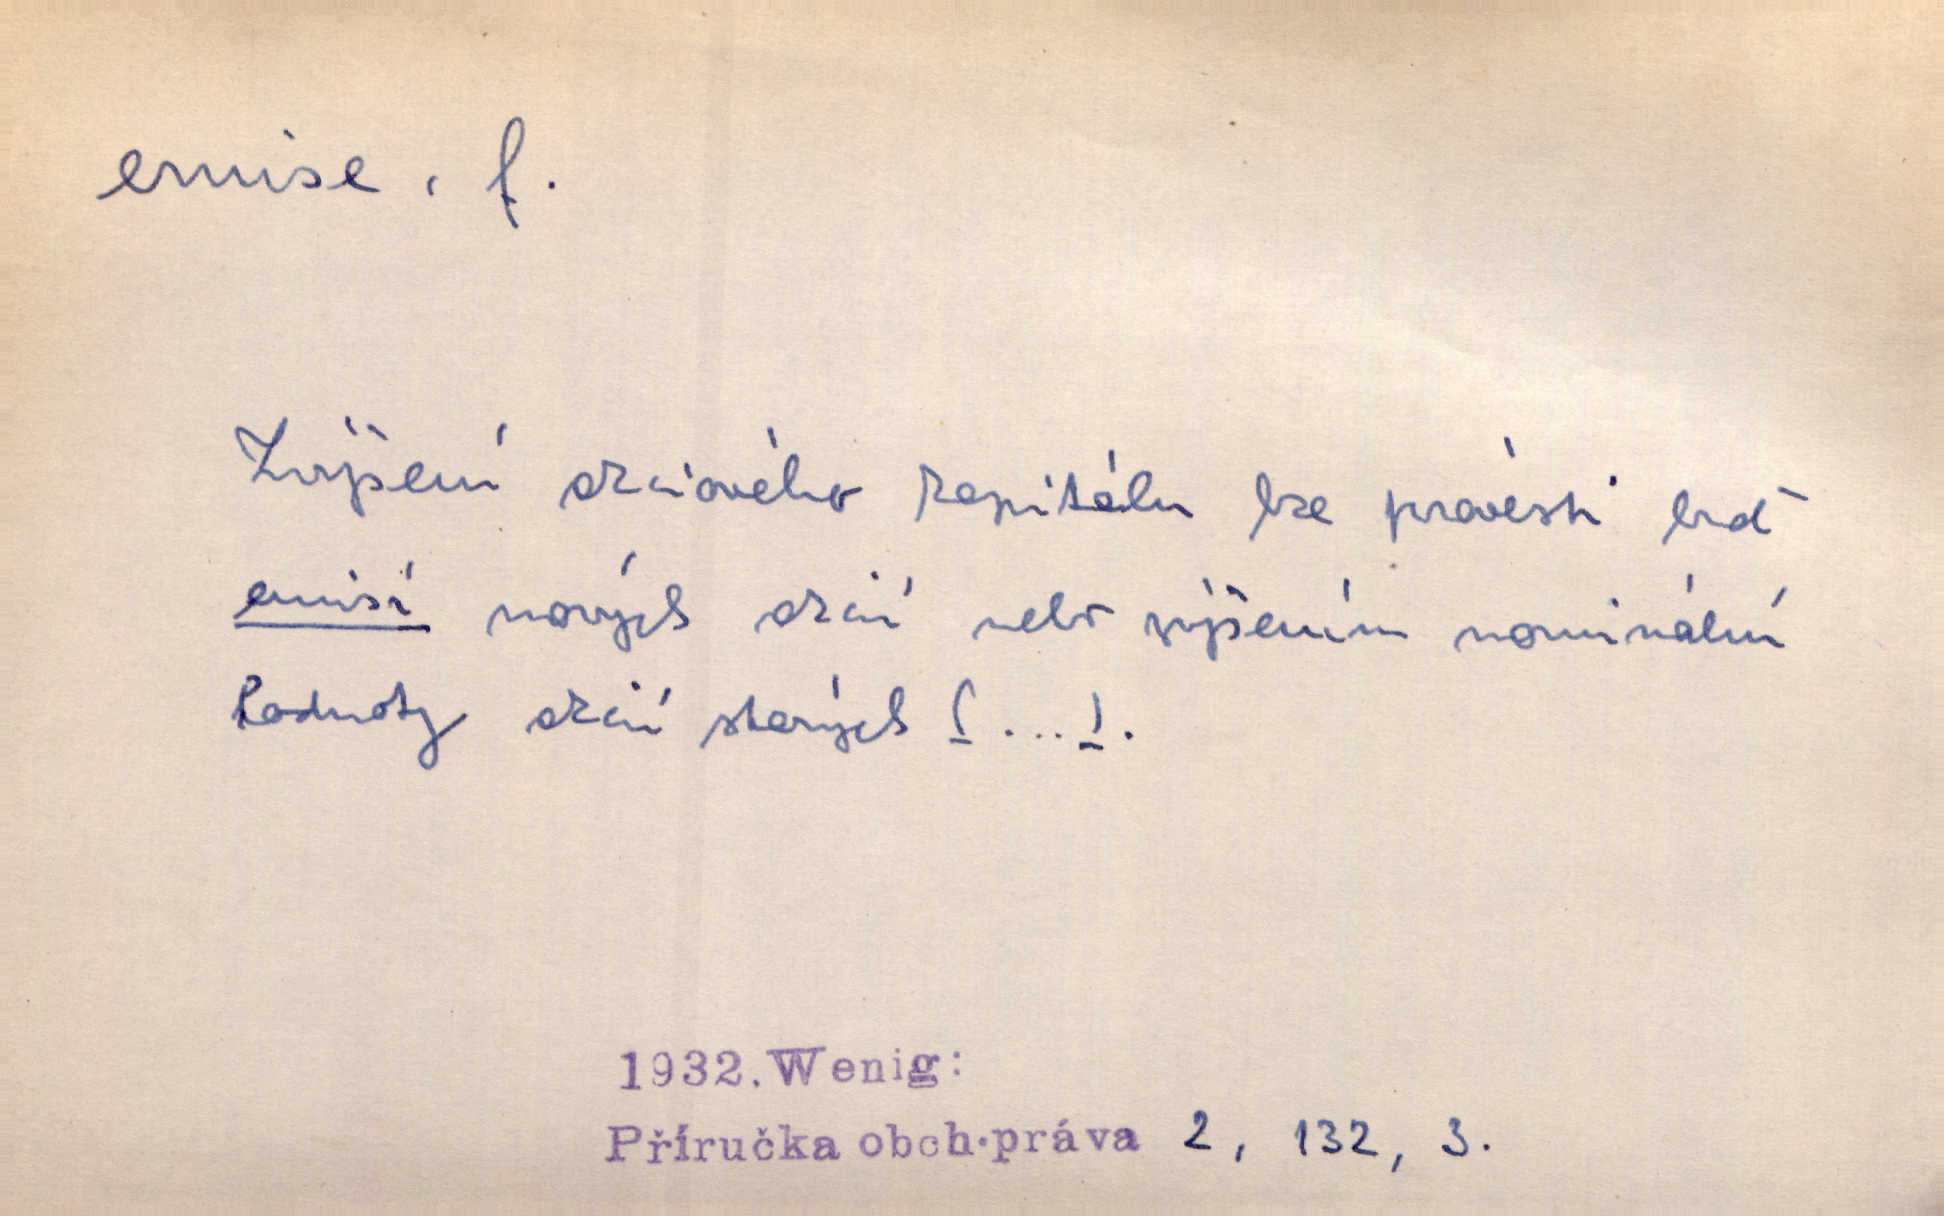 emise, f.
Zvýšení akciového kapitálu lze provésti buď
emisí nových akcií nebo zvýšením nominální
hodnoty akcií starých (...).
1932. Wenig:
Příručka obch. práva 2, 132, 3.